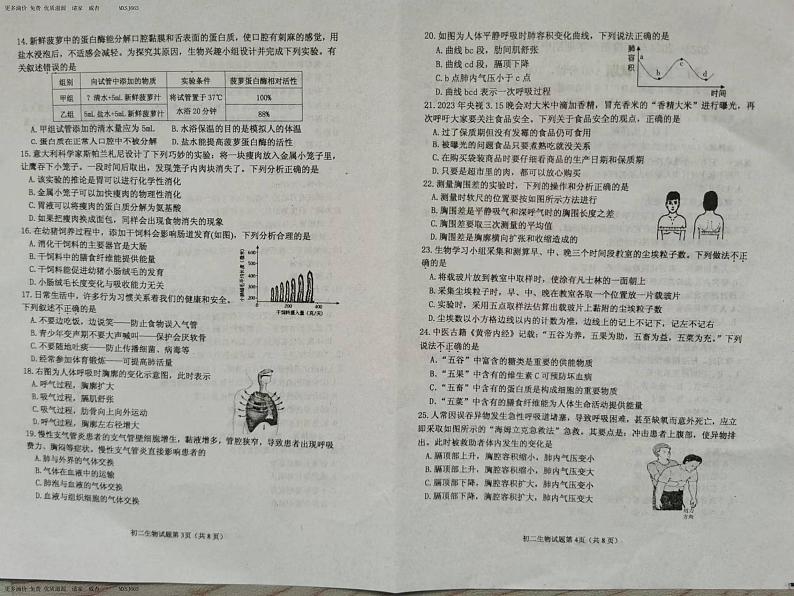 更多油价 免费 优质滋源
14.新鲜菠萝中的菠萝蛋白酶能分解口腔黏膜和舌表面的蛋白质，使口腔有刺麻的感觉，用
盐水浸泡后，不适感会减轻。为探究其原因，生物兴趣小组设计并完成下列实验。有
关叙述错误的是
组别 向试管中添加的物质 实验条件 菠萝蛋白酶相对活性
甲组 ？清水+5mL新鲜菠萝汁 将试管置于37℃ 100%
乙组 5mL盐水+5mL新鲜菠萝汁 水浴20分钟 88%
A.甲组试管添加的清水量应为5mL B.水浴保温的目的是模拟人的体温
C.蛋白质在正常人口腔中不被分解 D.盐水能提高菠萝蛋白酶的活性
15.意大利科学家斯帕兰札尼设计了下列巧妙的实验，将一块瘦肉放入金属小笼子里，
让鹰吞下小笼子。一段时间后取出，发现笼子内肉块消失了。下列分析正确的是
A.该实验的推论是胃可以进行化学性消化
B.金属小笼子可以加快瘦肉的物理性消化
C.胃液可以将瘦肉的蛋白质分解为氨基酸
D.如果把瘦肉换成面包，同样会出现食物消失的现象
16.在幼猪饲养过程中，添加干饲料会影响肠道发育(如图)，下列分析合理的是
A.消化干饲料的主要器官是大肠
B.干饲料中的膳食纤维能提供能量
C.干饲料能促进幼猪小肠绒毛的发育
D.小肠绒毛长度变化与吸收能力无关
600
500
400
300
200
0 200 400
干饲料摄入量（克/天）
17.日常生活中，许多行为习惯关系着我们的健康和安全。
下列叙述不正确的是
A.不要边吃饭，边说笑——防止食物误入气管
B.青少年变声期不要大声喊叫——保护会厌软骨
C.不要随地吐痰——防止传播细菌、病毒等
D.经常参加体育锻炼——可提高肺活量
18.右图为人体呼吸时胸廓的变化示意图，此时表示
A.呼气过程，胸廓扩大
B.吸气过程，膈肌舒张
C.吸气过程，肋骨向上向外运动
D.呼气过程，胸廓缩小
19.慢性支气管炎患者的支气管壁细胞增生，黏液增多，管腔狭窄，导致患者出现呼吸
费力、胸闷等症状。慢性支气管炎直接影响患者的
A.肺与外界的气体交换
B.气体在血液中的运输
C.肺泡与血液的气体交换
D.血液与组织细胞的气体交换
初二生物试题第3页（共8页）
20.如图为人体平静呼吸时肺容积变化曲线，下列说法正确的是
A.曲线bc段，肋间肌舒张
B.曲线cd段，膈顶下降
C.b点肺内气压小于c点
D.曲线bcd表示一次呼吸过程
肺容积
a
b
c
d
时间
21.2023年央视3.15晚会对大米中滴加香精，冒充香米的“香精大米”进行曝光，再
次呼吁大家要关注食品安全。下列关于食品安全的观点，正确的是
A.过了保质期但没有发霉的食品仍可食用
B.被曝光的问题食品只要煮熟吃就没关系
C.在购买袋装商品时要仔细看商品的生产日期和保质期
D.只要是超市里的肉，都可以放心购买
22.测量胸围差的实验时，下列的操作和分析正确的是
A.测量时软尺的位置要按如图所示方法进行
B.胸围差是平静吸气和深呼气时的胸围长度之差
C.胸围差要取三次测量的平均值
D.胸围差是胸廓横向扩张和收缩造成的
23.生物学习小组采集和测算早、中、晚三个时间段教室的尘埃粒子数。下列做法不正
确的是
A.将载玻片放到教室中取样时，使涂有凡士林的一面朝上
B.采集尘埃粒子时，早、中、晚在教室各取一个位置放一片载玻片
C.实验时，采用五点取样法估算出载玻片上黏附的尘埃粒子数
D.尘埃数以小方格边线以内的计数为准，边线上的记上不记下，记左不记右
24.中医古籍《黄帝内经》记载：“五谷为养，五果为助，五畜为益，五菜为充。”下列
说法不正确的是
A.“五谷”中富含的糖类是重要的供能物质
B.“五果”中含有的维生素C可预防坏血病
C.“五畜”中含有的蛋白质是构成细胞的重要物质
D.“五菜”中含有的膳食纤维能为人体生命活动提供能量
25.人常因误吞异物发生急性呼吸道堵塞，导致呼吸困难，甚至缺氧而意外死亡，应立
即采取如图所示的“海姆立克急救法”急救。其要点是：冲击患者上腹部，使异物排
出。此时被救助者体内发生的变化是
A.膈顶部上升，胸腔容积缩小，肺内气压变小
B.膈顶部上升，胸腔容积缩小，肺内气压变大
C.膈顶部下降，胸腔容积扩大，肺内气压变小
D.膈顶部下降，胸腔容积扩大，肺内气压变大
用力
方向
初二生物试题第4页（共8页）